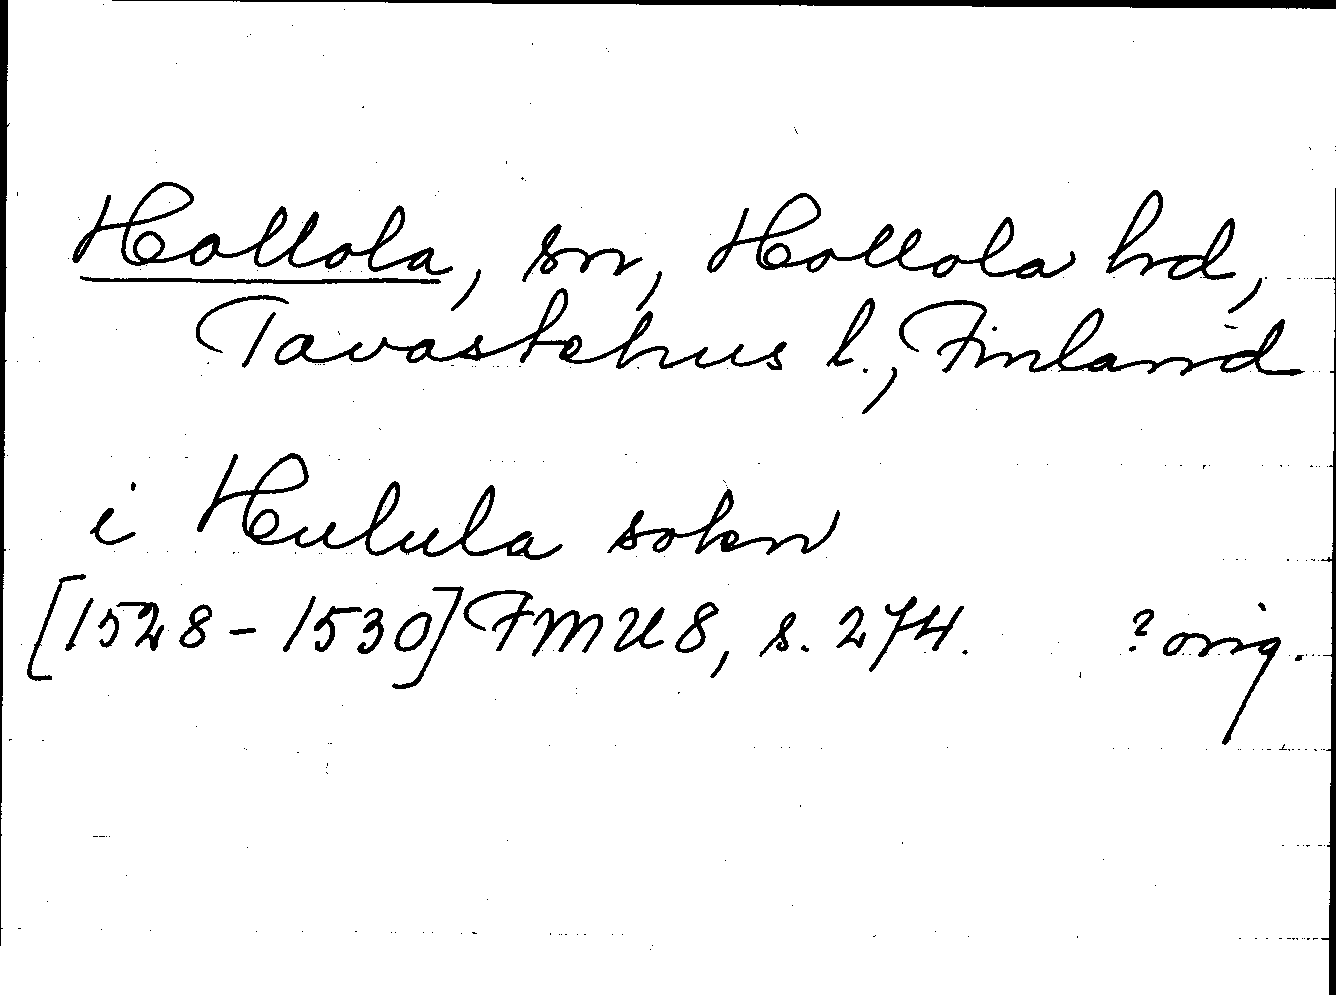 Hollola, sn, Hollola hd,
Tavastehus l., Finland
i Hulula sokn
[1528-1530] FMU 8, s. 274. ? orig.